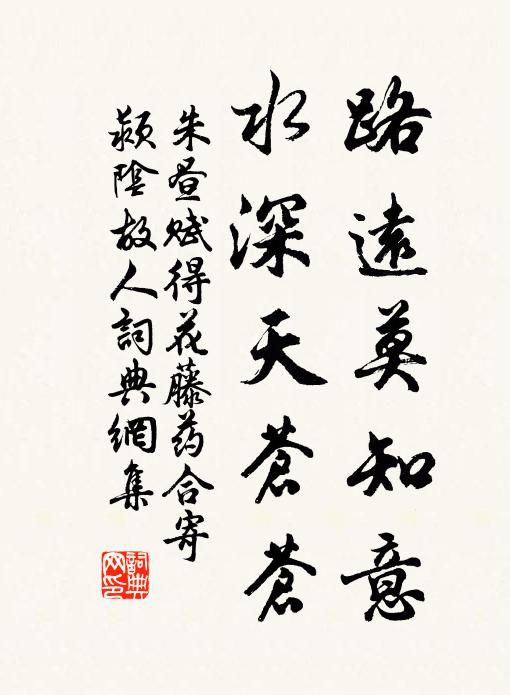 路遠莫知意
水深天蒼蒼
朱昼赋得花藤药合寄
颍陰故人詞典網集
詞典
网印